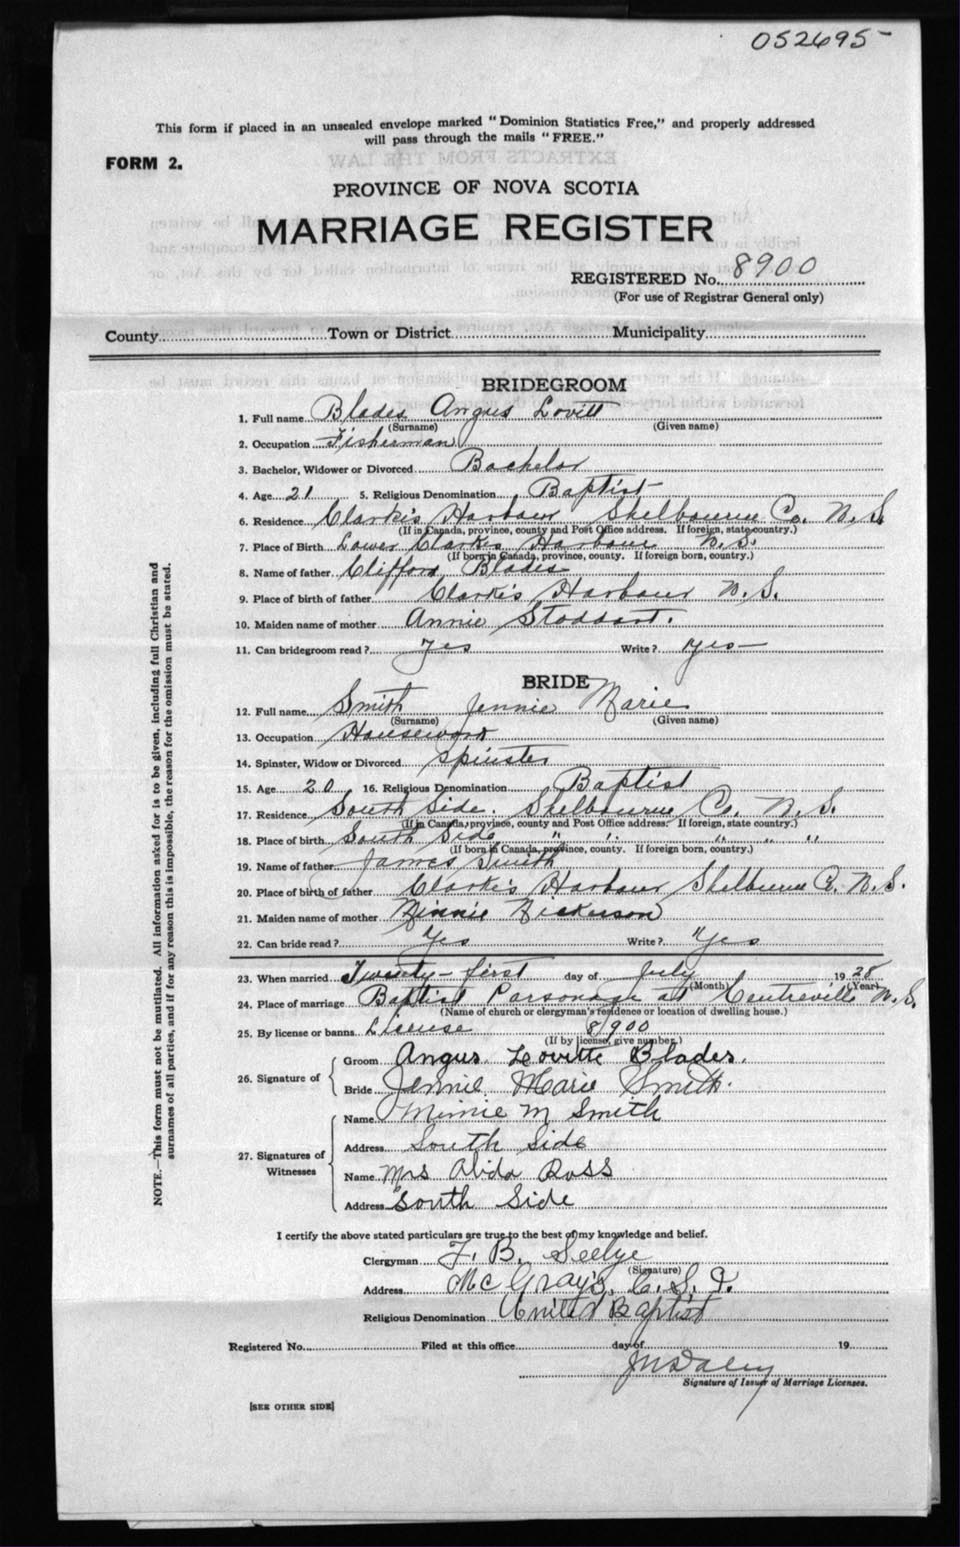 052695
This form if placed in an unsealed envelope marked "Dominion Statistics Free," and properly addressed
will pass through the mails "FREE."
FORM 2.
PROVINCE OF NOVA SCOTIA
MARRIAGE REGISTER
REGISTERED No. 8900
(For use of Registrar General only)
County Town or District Municipality
BRIDEGROOM
1. Full name Blades Angus Lovitt
(Surname) (Given name)
2. Occupation Fisherman
3. Bachelor, Widower or Divorced Bachelor
4. Age 21 5. Religious Denomination Baptist
6. Residence Clarke's Harbour Shelbourne Co. N.S.
(If in Canada, province, county and Post Office address. If foreign, state country.)
7. Place of Birth Lower Clarke's Harbour N.S.
(If born in Canada, province, county. If foreign born, country.)
8. Name of father Clifford Blades
9. Place of birth of father Clarke's Harbour N.S.
10. Maiden name of mother Annie Stoddart.
11. Can bridegroom read? Yes Write? Yes
BRIDE
12. Full name Smith Jennie Marie
(Surname) (Given name)
13. Occupation Housework
14. Spinster, Widow or Divorced Spinster
15. Age 20 16. Religious Denomination Baptist
17. Residence South Side. Shelbourne Co. N.S.
(If in Canada, province, county and Post Office address. If foreign, state country.)
18. Place of birth South Side " " " " "
(If born in Canada, province, county. If foreign born, country.)
19. Name of father James Smith
20. Place of birth of father Clarke's Harbour Shelburne Co. N.S.
21. Maiden name of mother Minnie Nickerson
22. Can bride read? Yes Write? Yes
23. When married Twenty-first day of July 1928
(Month) (Year)
24. Place of marriage Baptist Parsonage at Centreville N.S.
(Name of church or clergyman's residence or location of dwelling house.)
25. By license or banns License 8900
(If by license, give number.)
26. Signature of Groom Angus Lovitte Blades.
Bride Jennie Marie Smith.
27. Signatures of Witnesses Name Minnie M Smith
Address South Side
Name Mrs Alida Ross
Address South Side
I certify the above stated particulars are true to the best of my knowledge and belief.
Clergyman F. B. Seelye
(Signature)
Address McGray's, C. S. I.
Religious Denomination United Baptist
Registered No. Filed at this office day of 19
Signature of Issuer of Marriage Licenses.
[SEE OTHER SIDE]
NOTE.—This form must not be mutilated. All information asked for is to be given, including full Christian and
surnames of all parties, and if for any reason this is impossible, the reason for the omission must be stated.